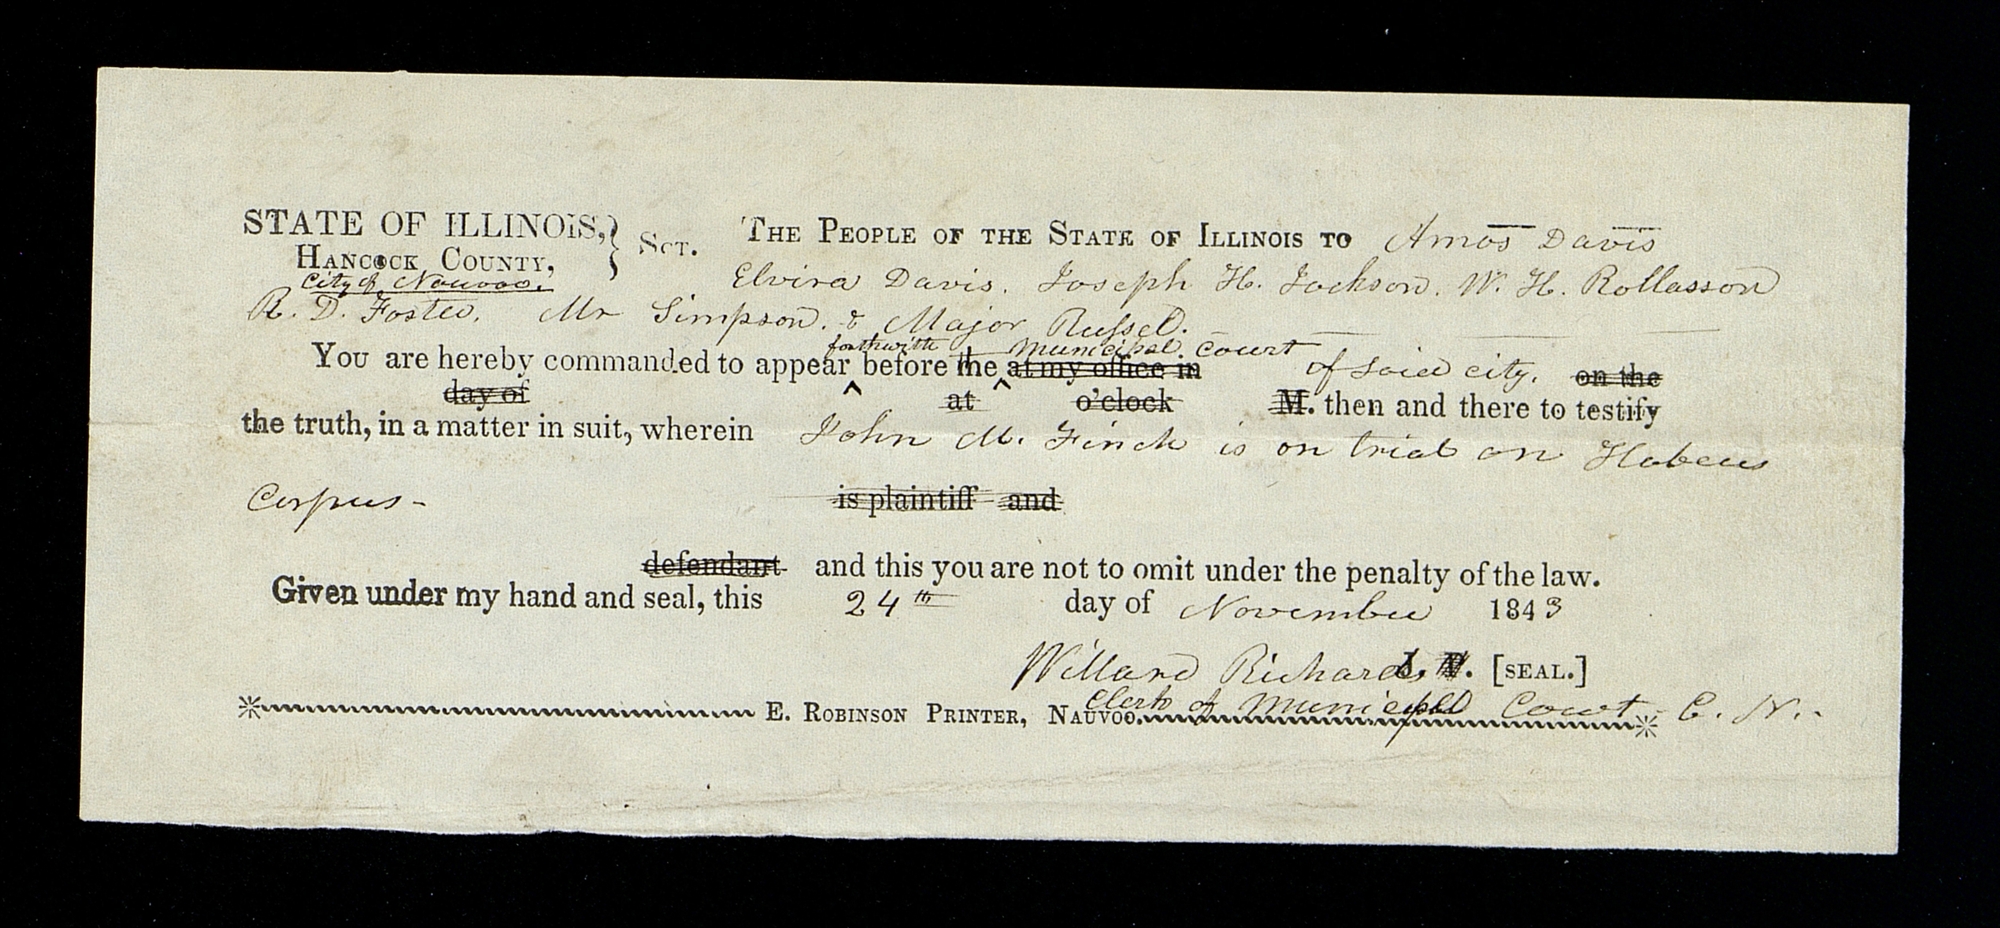 STATE OF ILLINOIS, } Sct. The People of the State of Illinois to Amos Davis
Hancock County,
City of Nauvoo. Elvira Davis. Joseph H. Jackson. W. H. Rollasson
R. D. Foster, Mr Simpson. & Major Russel.
forthwith Municipal Court
You are hereby commanded to appear ^ before the ^ at my office in of said city. on the
day of at o'clock M. then and there to testify
the truth, in a matter in suit, wherein John M. Finch is on trial on Habeus
Corpus-
is plaintiff and
defendant and this you are not to omit under the penalty of the law.
Given under my hand and seal, this 24th day of November 1843
Willard Richards [SEAL.]
Clerk of Municipal Court C. N.
E. Robinson Printer, Nauvoo.